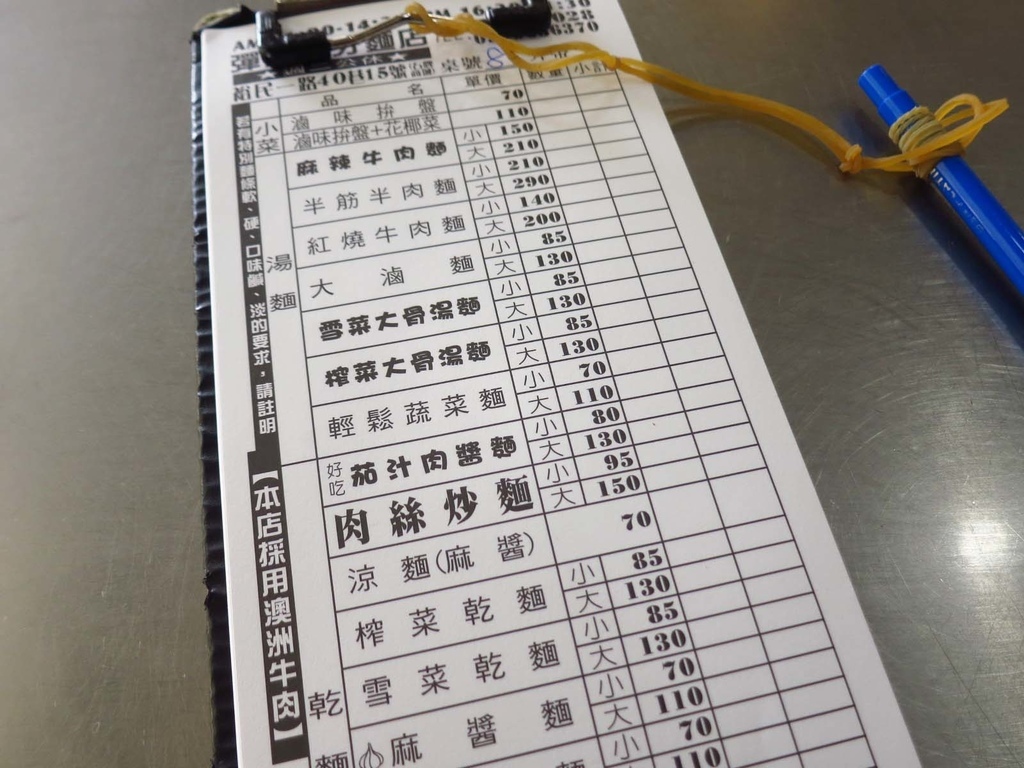 麵店
一路40巷15號 桌號 8
品名 單價 數量 小計
小菜
滷味拚盤 70
滷味拚盤+花椰菜 110
湯麵
麻辣牛肉麵 小 150
大 210
半筋半肉麵 小 210
大 290
紅燒牛肉麵 小 140
大 200
大滷麵 小 85
大 130
雪菜大骨湯麵 小 85
大 130
榨菜大骨湯麵 小 85
大 130
輕鬆蔬菜麵 小 70
大 110
好吃 茄汁肉醬麵 小 80
大 130
肉絲炒麵 小 95
大 150
乾麵
涼麵(麻醬) 70
榨菜乾麵 小 85
大 130
雪菜乾麵 小 85
大 130
麻醬麵 小 70
大 110
小 70
110
若有特別麵條軟、硬、口味鹹、淡的要求,請註明
【本店採用澳洲牛肉】